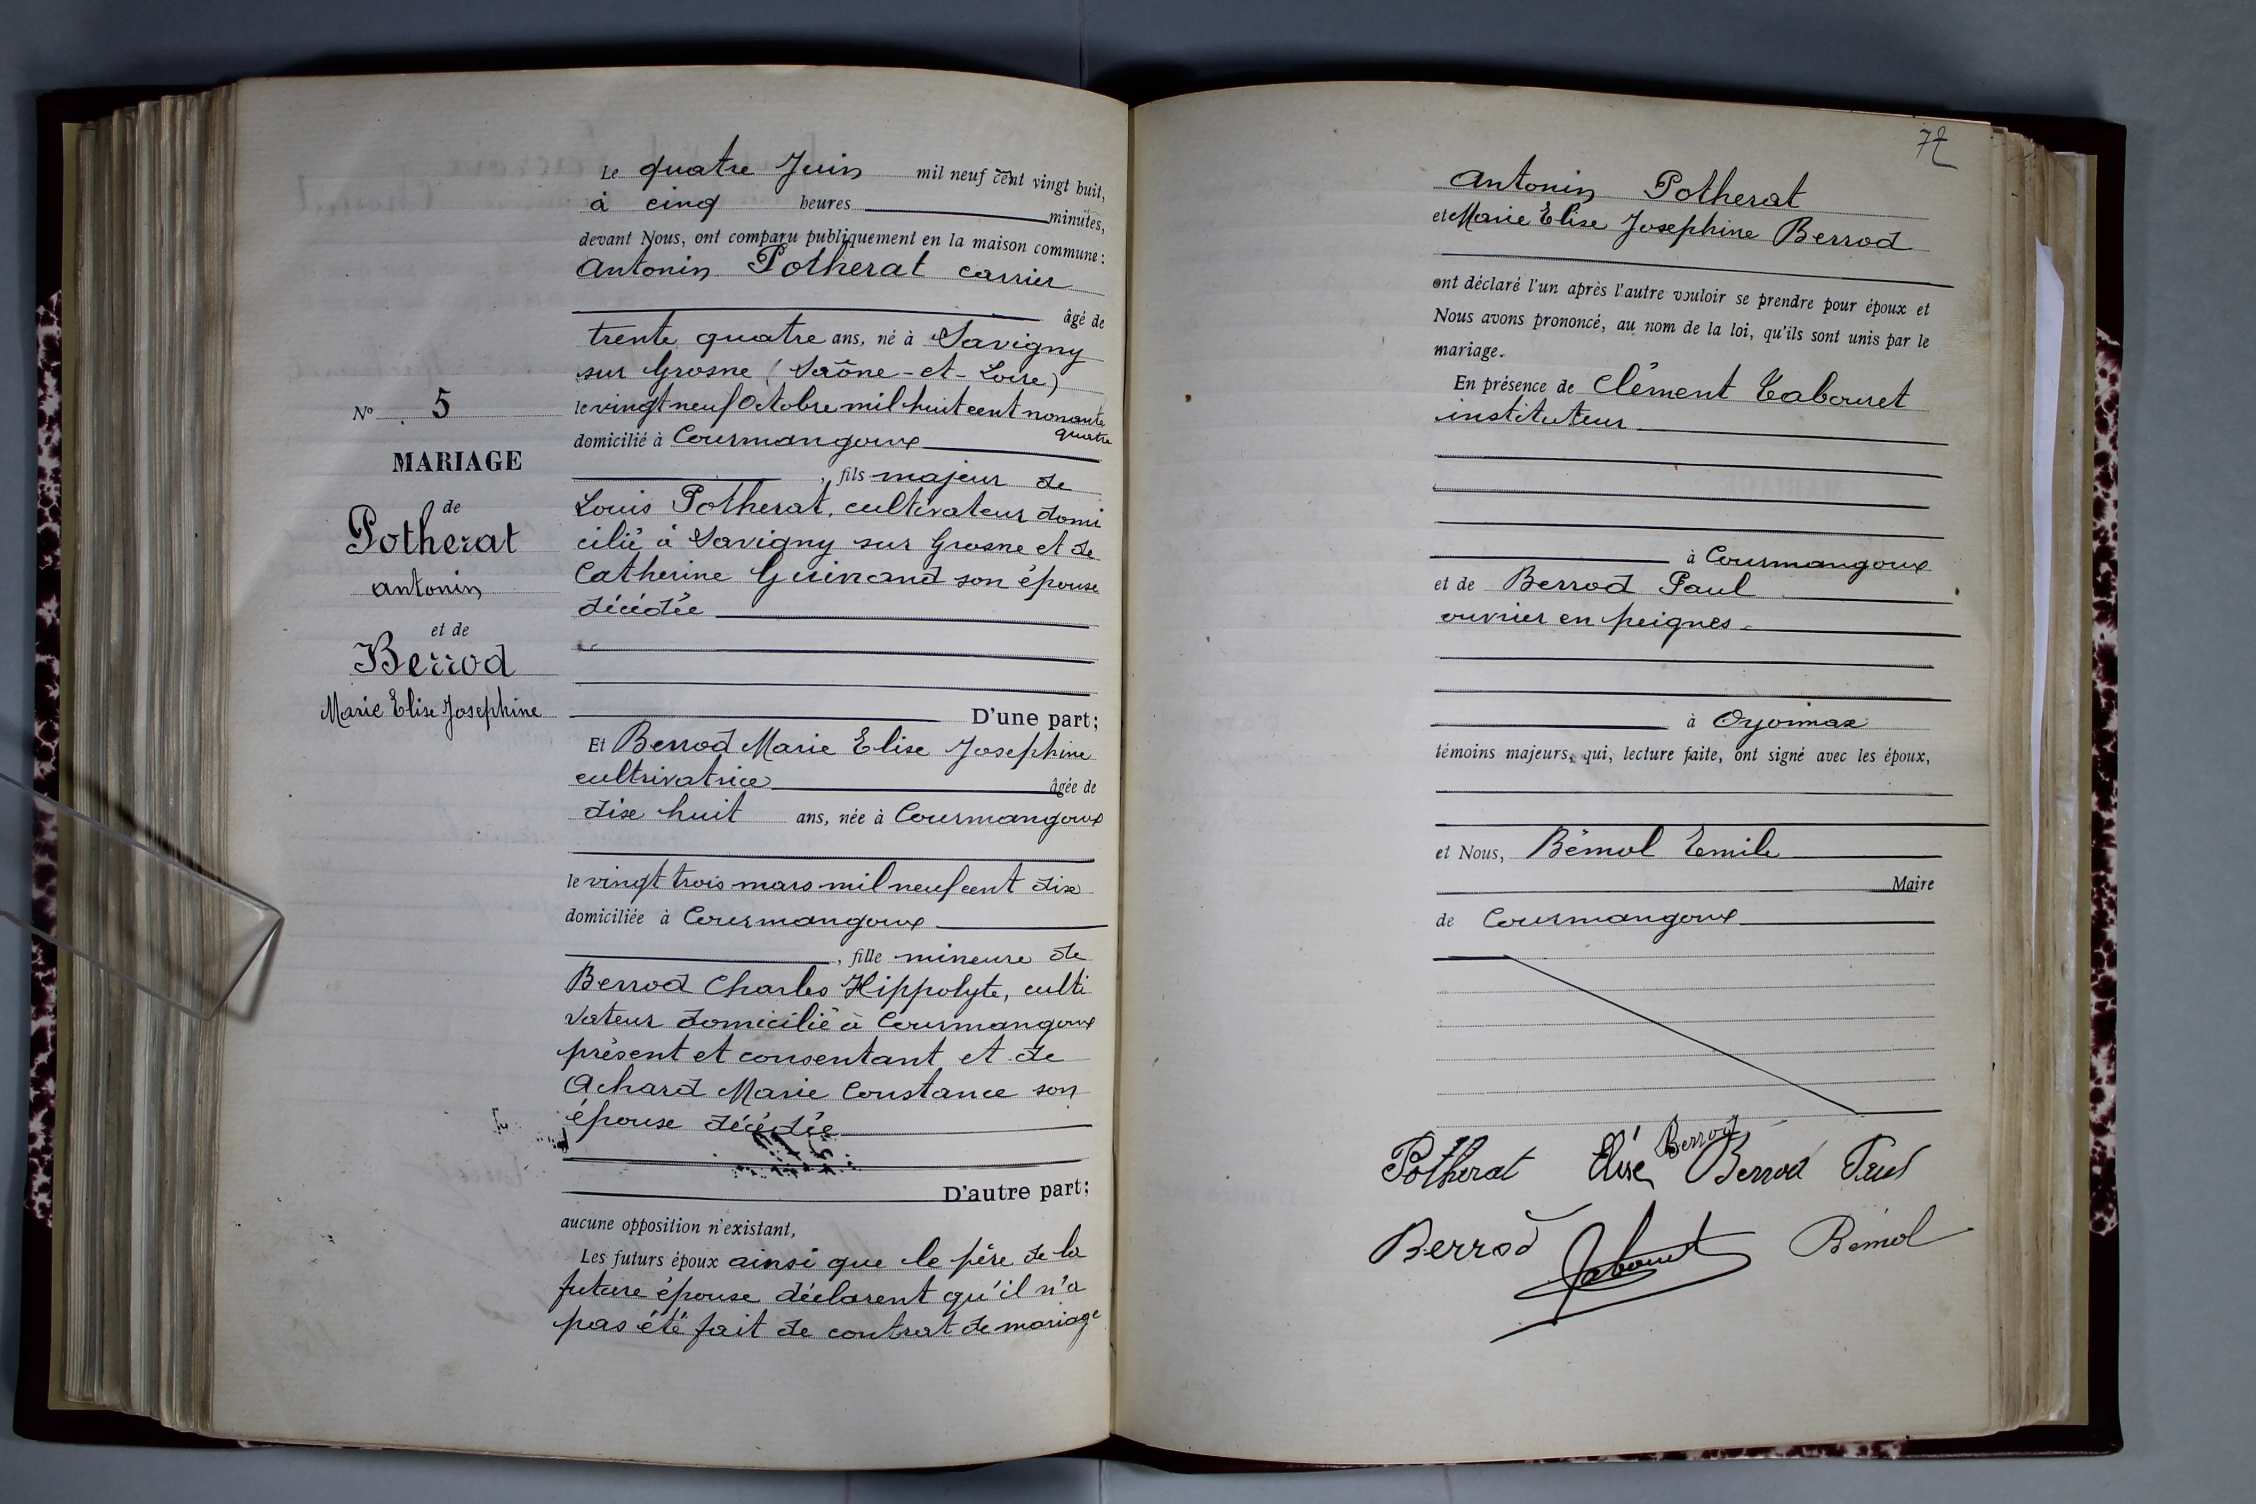 Le quatre Juin mil neuf cent vingt huit,
à cinq heures minutes,
devant Nous, ont comparu publiquement en la maison commune :
Antonin Potherat carrier
âgé de
trente quatre ans, né à Savigny
sur Grosne (Saône-et-Loire)
le vingt neuf Octobre mil huit cent nonante
quatre
domicilié à Courmangoux
, fils majeur de
Louis Potherat, cultivateur domi
cilié à Savigny sur Grosne et de
Catherine Guinand son épouse
décédée
D'une part;
Et Berrod Marie Elise Josephine
cultrivatrice âgée de
dix huit ans, née à Courmangoux
le vingt trois mars mil neuf cent dix
domiciliée à Courmangoux
, fille mineure de
Berrod Charles Hippolyte, culti
vateur domicilié à Courmangoux
présent et consentant et de
Achard Marie Constance son
épouse décédée
D'autre part;
aucune opposition n'existant,
Les futurs époux ainsi que le père de la
future épouse déclarent qu'il n'a
pas été fait de contrat de mariage
No 5
MARIAGE
de
Potherat
Antonin
et de
Berrod
Marie Elise Josephine
72
Antonin Potherat
et Marie Elise Josephine Berrod
ont déclaré l'un après l'autre vouloir se prendre pour époux et
Nous avons prononcé, au nom de la loi, qu'ils sont unis par le
mariage.
En présence de Clément Tabouret
instituteur
à Courmangoux
et de Berrod Paul
ouvrier en peignes
à Oyonnax
témoins majeurs, qui, lecture faite, ont signé avec les époux,
et Nous, Bémol Emile
Maire
de Courmangoux
Potherat Elise Berrod Berrod Paul
Berrod Tabouret Bémol